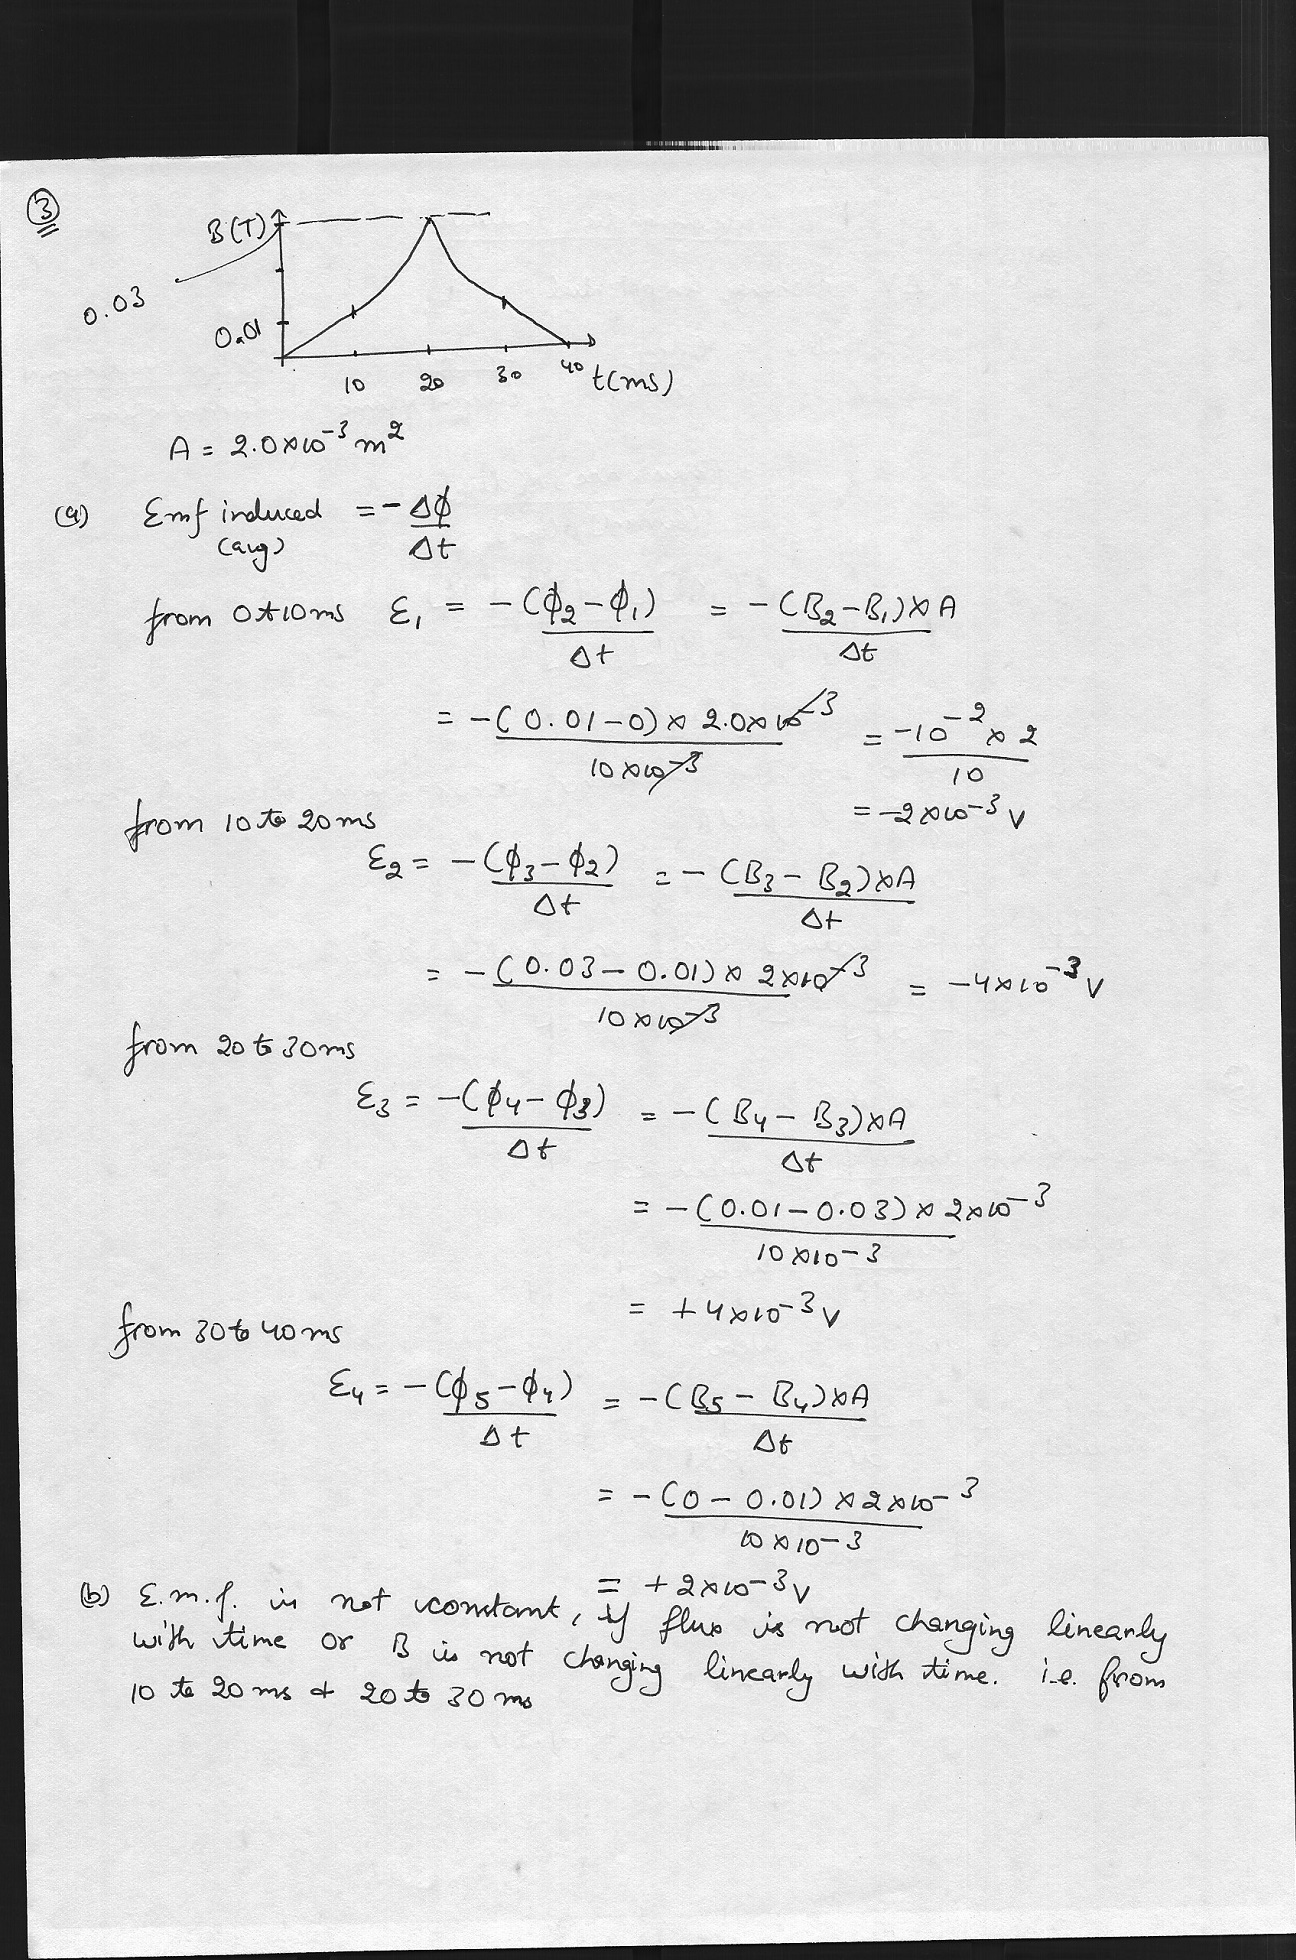 3
B(T)
0.03
0.01
10 20 30 40 t(ms)
A = 2.0×10⁻³ m²
(a) Emf induced = - Δϕ/Δt
(avg)
from 0 to 10ms ε₁ = -(ϕ₂-ϕ₁)/Δt = -(B₂-B₁)×A/Δt
= -(0.01-0)×2.0×10⁻³/10×10⁻³ = -10⁻²×2/10
= -2×10⁻³ V
from 10 to 20 ms
ε₂ = -(ϕ₃-ϕ₂)/Δt = -(B₃-B₂)×A/Δt
= -(0.03-0.01)×2×10⁻³/10×10⁻³ = -4×10⁻³ V
from 20 to 30ms
ε₃ = -(ϕ₄-ϕ₃)/Δt = -(B₄-B₃)×A/Δt
= -(0.01-0.03)×2×10⁻³/10×10⁻³
= +4×10⁻³ V
from 30 to 40 ms
ε₄ = -(ϕ₅-ϕ₄)/Δt = -(B₅-B₄)×A/Δt
= -(0-0.01)×2×10⁻³/10×10⁻³
= +2×10⁻³ V
(b) E.m.f. is not constant, if flux is not changing linearly
with time or B is not changing linearly with time. i.e. from
10 to 20 ms & 20 to 30 ms